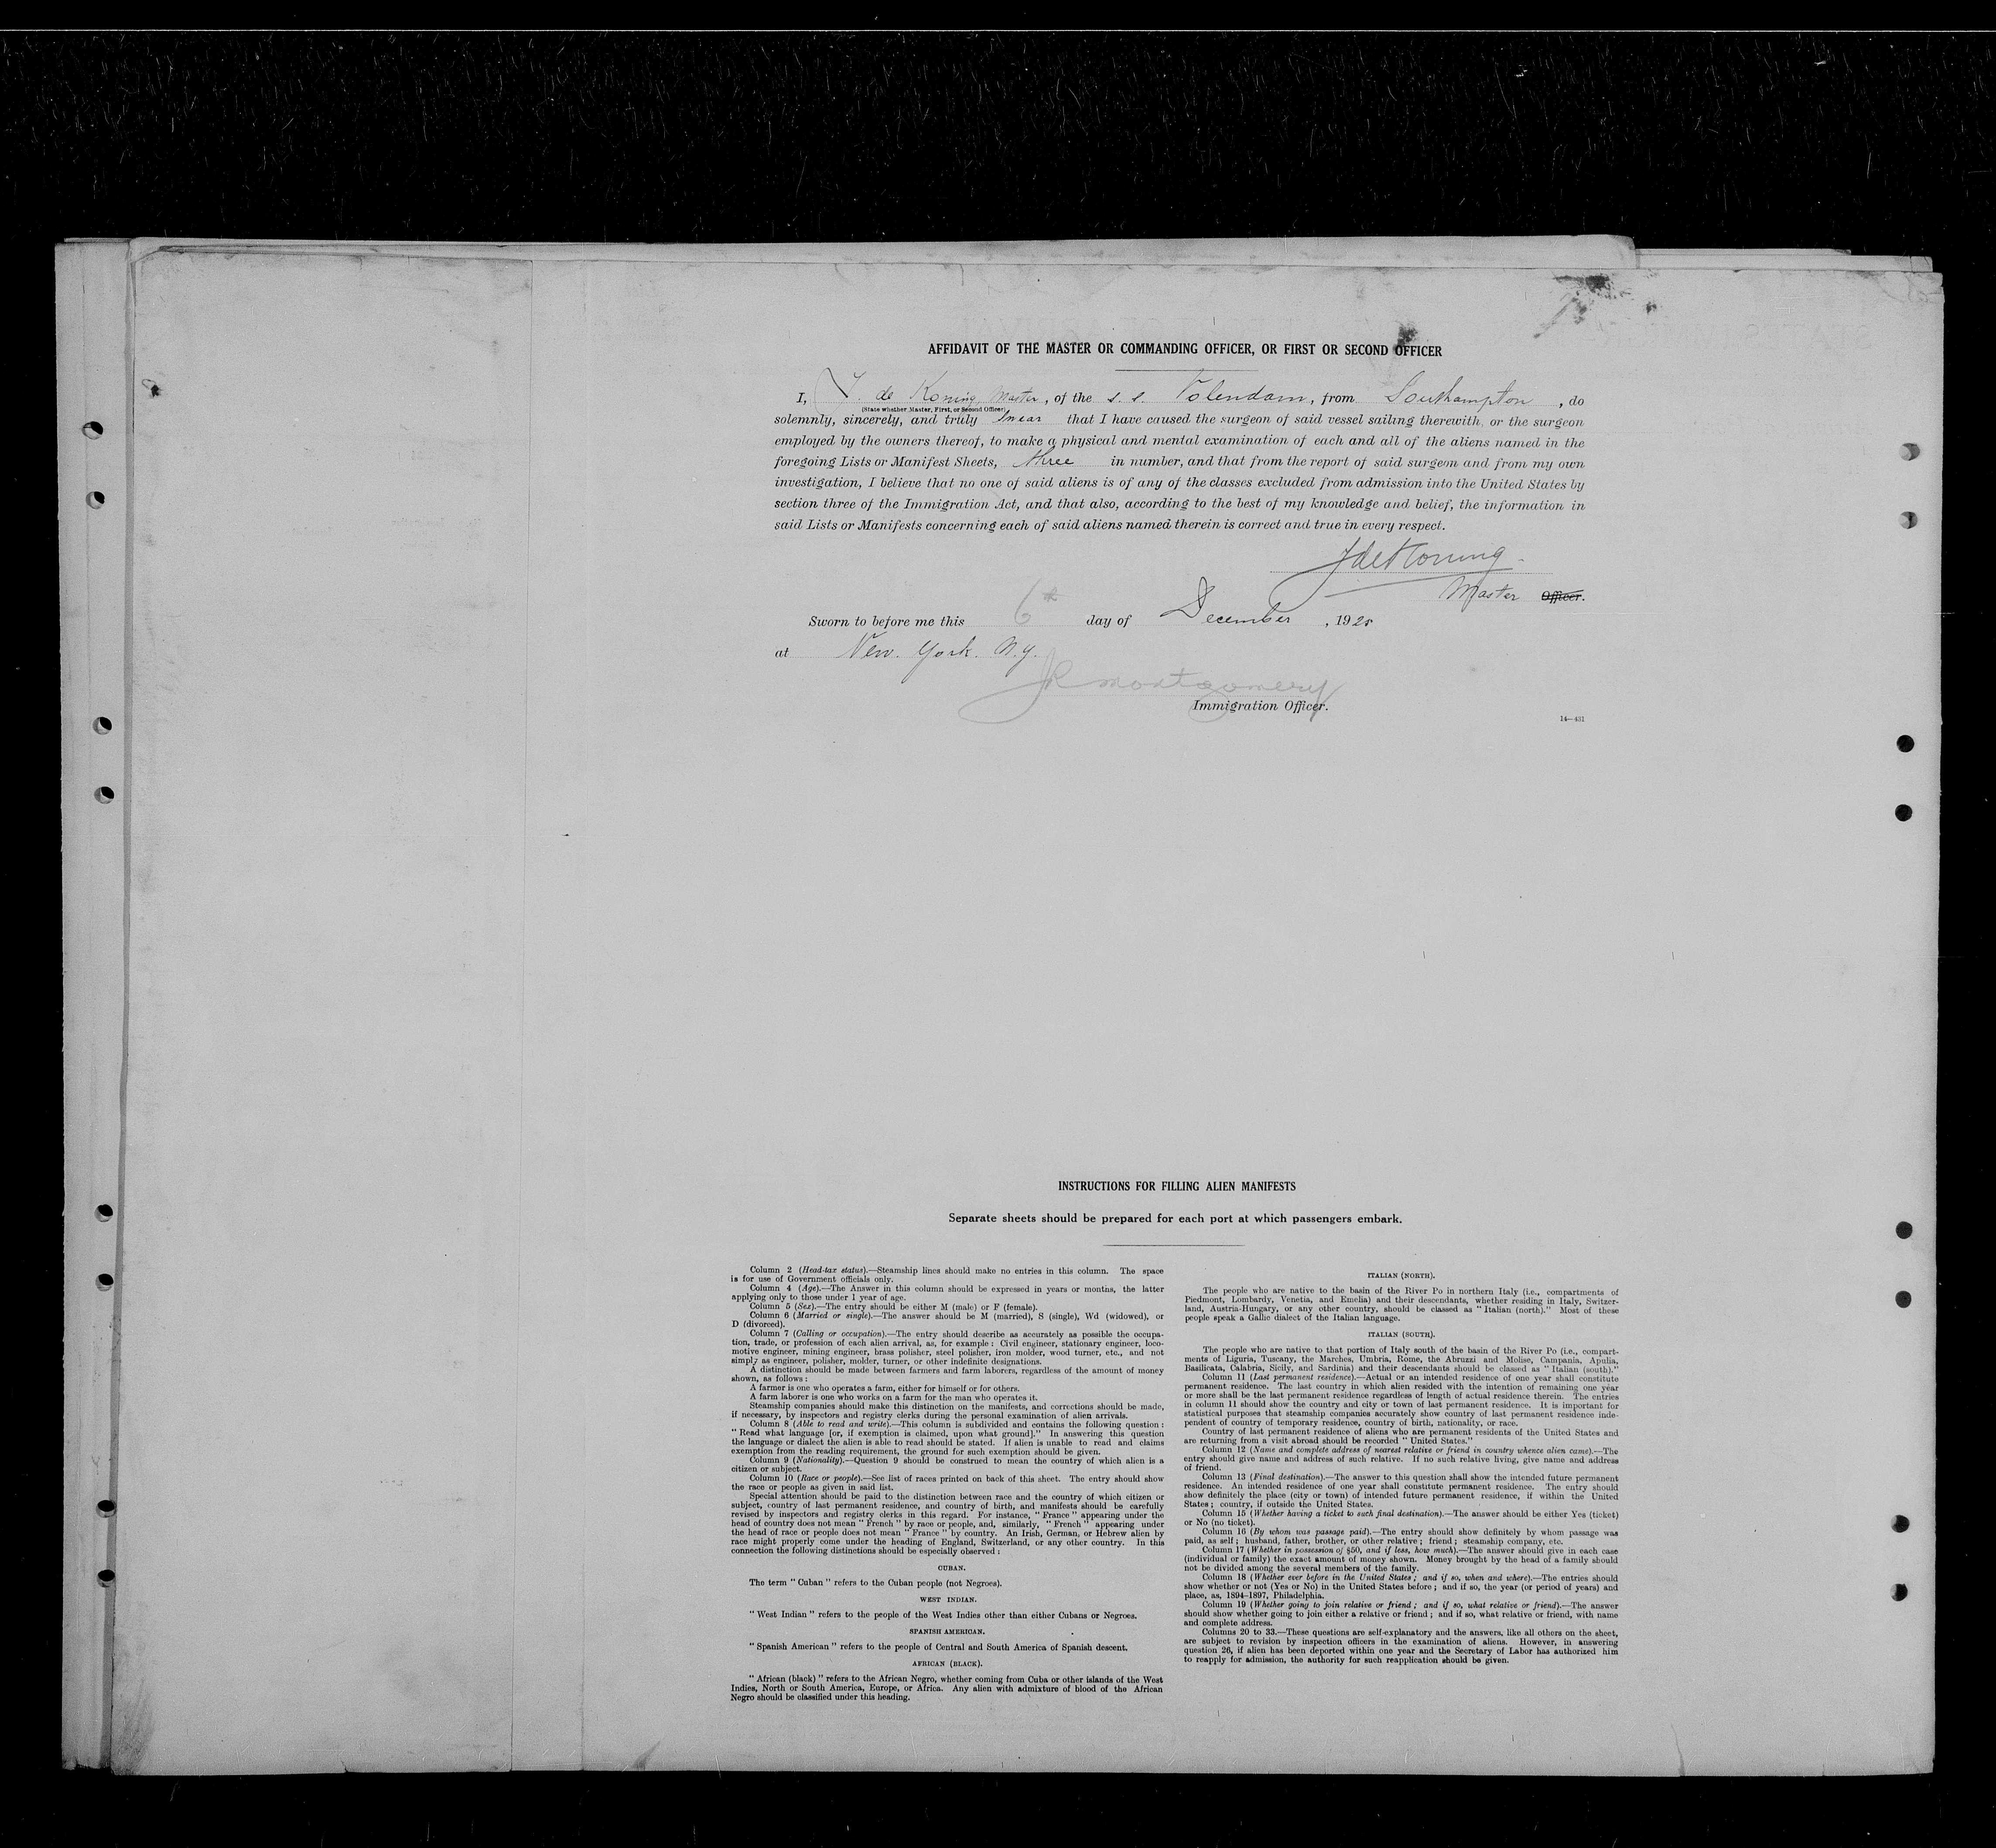 AFFIDAVIT OF THE MASTER OR COMMANDING OFFICER, OR FIRST OR SECOND OFFICER
I, J. de Koning, Master, of the s. s. Volendam, from Southampton, do
(State whether Master, First, or Second Officer)
solemnly, sincerely, and truly swear that I have caused the surgeon of said vessel sailing therewith, or the surgeon
employed by the owners thereof, to make a physical and mental examination of each and all of the aliens named in the
foregoing Lists or Manifest Sheets, three in number, and that from the report of said surgeon and from my own
investigation, I believe that no one of said aliens is of any of the classes excluded from admission into the United States by
section three of the Immigration Act, and that also, according to the best of my knowledge and belief, the information in
said Lists or Manifests concerning each of said aliens named therein is correct and true in every respect.
J de Koning
Master Officer.
Sworn to before me this 6th day of December, 1925
at New. York. N.y.
JR Montgomery
Immigration Officer.
14—431
INSTRUCTIONS FOR FILLING ALIEN MANIFESTS
Separate sheets should be prepared for each port at which passengers embark.
Column 2 (Head-tax status).—Steamship lines should make no entries in this column. The space
is for use of Government officials only.
Column 4 (Age).—The Answer in this column should be expressed in years or months, the latter
applying only to those under 1 year of age.
Column 5 (Sex).—The entry should be either M (male) or F (female).
Column 6 (Married or single).—The answer should be M (married), S (single), Wd (widowed), or
D (divorced).
Column 7 (Calling or occupation).—The entry should describe as accurately as possible the occupa-
tion, trade, or profession of each alien arrival, as, for example: Civil engineer, stationary engineer, loco-
motive engineer, mining engineer, brass polisher, steel polisher, iron molder, wood turner, etc., and not
simply as engineer, polisher, molder, turner, or other indefinite designations.
A distinction should be made between farmers and farm laborers, regardless of the amount of money
shown, as follows:
A farmer is one who operates a farm, either for himself or for others.
A farm laborer is one who works on a farm for the man who operates it.
Steamship companies should make this distinction on the manifests, and corrections should be made,
if necessary, by inspectors and registry clerks during the personal examination of alien arrivals.
Column 8 (Able to read and write).—This column is subdivided and contains the following question:
"Read what language [or, if exemption is claimed, upon what ground]." In answering this question
the language or dialect the alien is able to read should be stated. If alien is unable to read and claims
exemption from the reading requirement, the ground for such exemption should be given.
Column 9 (Nationality).—Question 9 should be construed to mean the country of which alien is a
citizen or subject.
Column 10 (Race or people).—See list of races printed on back of this sheet. The entry should show
the race or people as given in said list.
Special attention should be paid to the distinction between race and the country of which citizen or
subject, country of last permanent residence, and country of birth, and manifests should be carefully
revised by inspectors and registry clerks in this regard. For instance, "France" appearing under the
head of country does not mean "French" by race or people, and, similarly, "French" appearing under
the head of race or people does not mean "France" by country. An Irish, German, or Hebrew alien by
race might properly come under the heading of England, Switzerland, or any other country. In this
connection the following distinctions should be especially observed:
CUBAN.
The term "Cuban" refers to the Cuban people (not Negroes).
WEST INDIAN.
"West Indian" refers to the people of the West Indies other than either Cubans or Negroes.
SPANISH AMERICAN.
"Spanish American" refers to the people of Central and South America of Spanish descent.
AFRICAN (BLACK).
"African (black)" refers to the African Negro, whether coming from Cuba or other islands of the West
Indies, North or South America, Europe, or Africa. Any alien with admixture of blood of the African
Negro should be classified under this heading.
ITALIAN (NORTH).
The people who are native to the basin of the River Po in northern Italy (i.e., compartments of
Piedmont, Lombardy, Venetia, and Emelia) and their descendants, whether residing in Italy, Switzer-
land, Austria-Hungary, or any other country, should be classed as "Italian (north)." Most of these
people speak a Gallic dialect of the Italian language.
ITALIAN (SOUTH).
The people who are native to that portion of Italy south of the basin of the River Po (i.e., compart-
ments of Liguria, Tuscany, the Marches, Umbria, Rome, the Abruzzi and Molise, Campania, Apulia,
Basilicata, Calabria, Sicily, and Sardinia) and their descendants should be classed as "Italian (south)."
Column 11 (Last permanent residence).—Actual or an intended residence of one year shall constitute
permanent residence. The last country in which alien resided with the intention of remaining one year
or more shall be the last permanent residence regardless of length of actual residence therein. The entries
in column 11 should show the country and city or town of last permanent residence. It is important for
statistical purposes that steamship companies accurately show country of last permanent residence inde-
pendent of country of temporary residence, country of birth, nationality, or race.
Country of last permanent residence of aliens who are permanent residents of the United States and
are returning from a visit abroad should be recorded "United States."
Column 12 (Name and complete address of nearest relative or friend in country whence alien came).—The
entry should give name and address of such relative. If no such relative living, give name and address
of friend.
Column 13 (Final destination).—The answer to this question shall show the intended future permanent
residence. An intended residence of one year shall constitute permanent residence. The entry should
show definitely the place (city or town) of intended future permanent residence, if within the United
States; country, if outside the United States.
Column 15 (Whether having a ticket to such final destination).—The answer should be either Yes (ticket)
or No (no ticket).
Column 16 (By whom was passage paid).—The entry should show definitely by whom passage was
paid, as self; husband, father, brother, or other relative; friend; steamship company, etc.
Column 17 (Whether in possession of $50, and if less, how much).—The answer should give in each case
(individual or family) the exact amount of money shown. Money brought by the head of a family should
not be divided among the several members of the family.
Column 18 (Whether ever before in the United States; and if so, when and where).—The entries should
show whether or not (Yes or No) in the United States before; and if so, the year (or period of years) and
place, as, 1894-1897, Philadelphia.
Column 19 (Whether going to join relative or friend; and if so, what relative or friend).—The answer
should show whether going to join either a relative or friend; and if so, what relative or friend, with name
and complete address.
Columns 20 to 33.—These questions are self-explanatory and the answers, like all others on the sheet,
are subject to revision by inspection officers in the examination of aliens. However, in answering
question 26, if alien has been deported within one year and the Secretary of Labor has authorized him
to reapply for admission, the authority for such reapplication should be given.